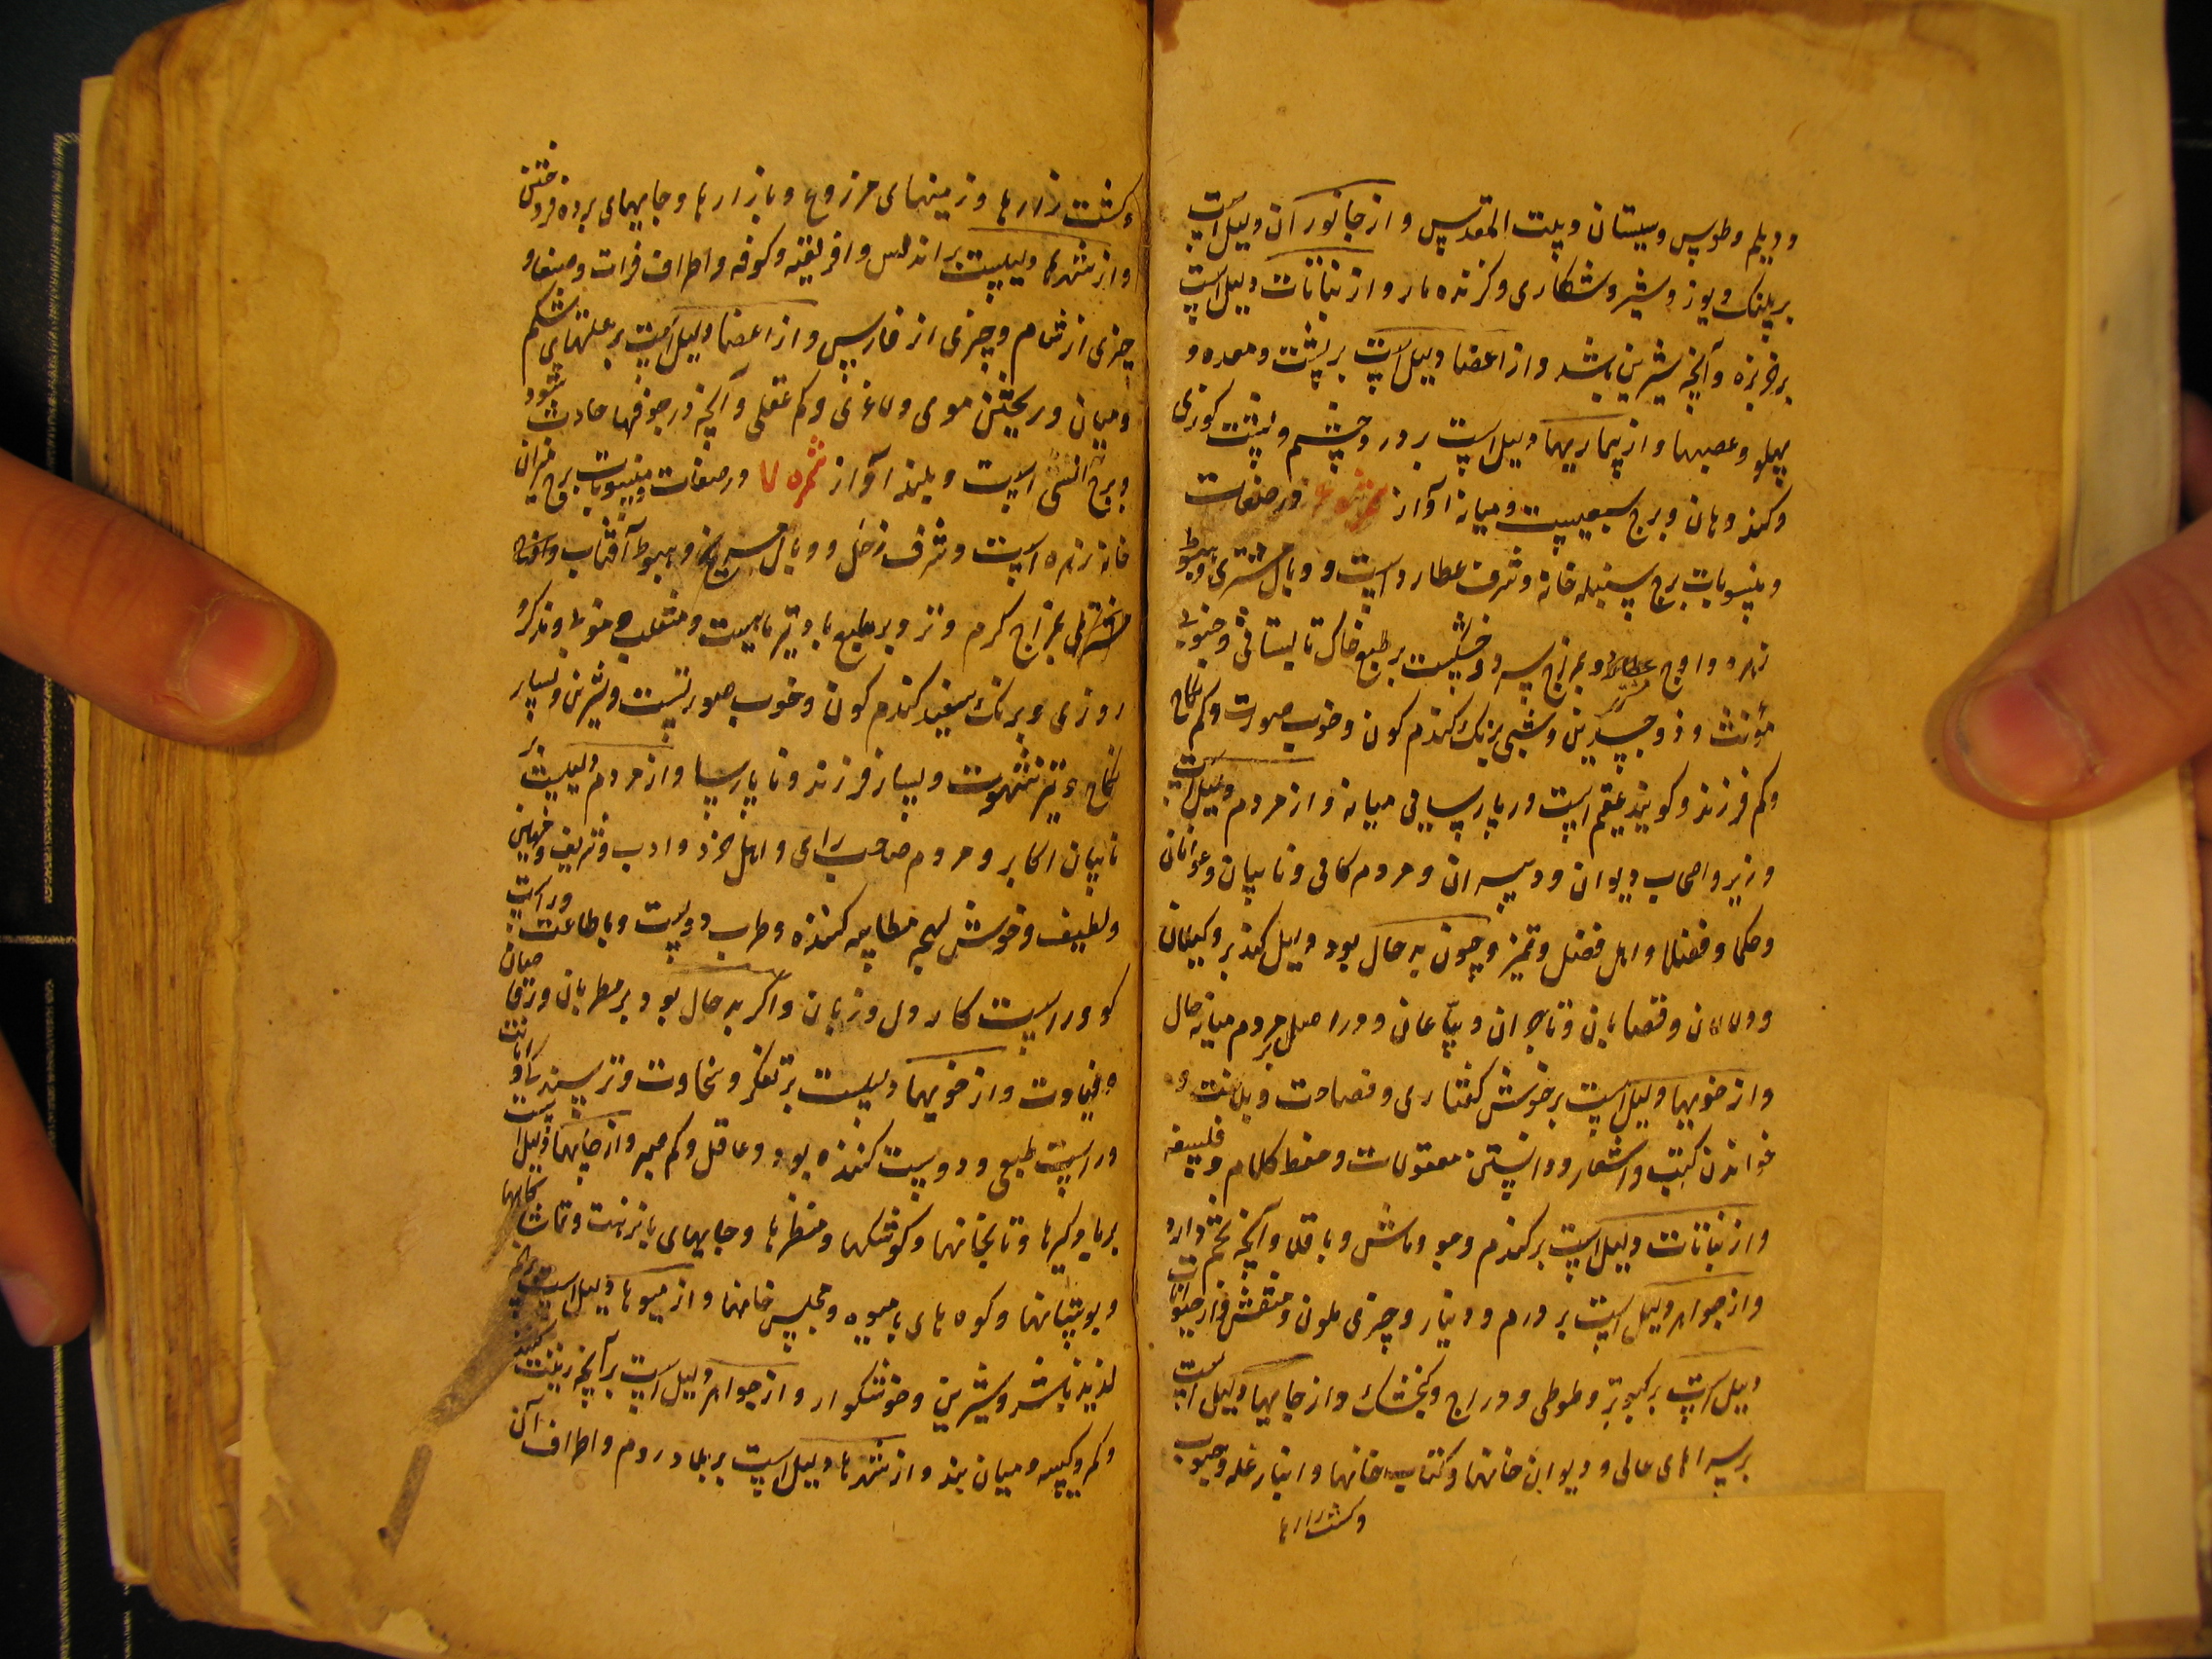 و دیلم و طوس و سیستان و بیت المقدس و از جانوران دلیل است
بر پلنک و یوز و شیر و شکاری و کزنده مار و از نباتات دلیل است
بر خربزه و آنچه شیرین باشد و از اعضا دلیل است بر پشت و معده و
پهلو و عصبها و از بیماریها دلیل است بر درد چشم و پشت کوزی
و کند دهان و برج سبعیست و میانه آواز ثمره ۶ در صفات
و منسوبات برج سنبله خانه و شرف عطارد است و وبال مشتری و هبوط
زهره و اوج عطارد و بمزاج سرد و خشکست بر طبع خاک تابستانی و جنوبی
مؤنث و ذو جسدین و شبی برنک کندم کون و خوب صورت و کم نکاح
و کم فرزند و کویند عقیم است و در پارسایی میانه و از مردم دلیل است
وزیر و اصحاب دیوان و دبیران و مردم کافی و نایبان و عوانان
و حکما و فضلا و اهل فضل و تمیز و چون بد حال بود دلیل کند بر وکیلان
و دلالان و قصابان و تاجران و بیاعان و در اصل بر مردم میانه حال
و از خویها دلیل است بر خوش کفتاری و فصاحت و بلاغت و
خواندن کتب و اشعار و دانستن معقولات و حفظ کلام و فلسفه
و از نباتات دلیل است بر کندم و جو و ماش و باقلا و آنچه تخم دارد
و از جواهر دلیل است بر درم و دینار و چیزی ملون و منقش و از حیوانات
دلیل است بر کبوتر و طوطی و دراج و کنجشک و از جایها دلیل است
بر سراهای عالی و دیوان خانها و کتاب خانها و انبار غله و حبوب
و کشت زارها
و کشت زارها و زمینهای مزروع و بازارها و جایهای برده فروختن
و از شهرها دلیلست بر اندلس و افریقیه و کوفه و اطراف فرات و صنعا و
چیزی از شام و چیزی از فارس و از اعضا دلیل است بر علتهای شکم
و میان و ریختن موی و لاغری و کم عقلی و آنچه در جوفها حادث شود
و برج انسی است و بلند آواز ثمره ۷ در صفات و منسوبات برج میزان
خانه زهره است و شرف زحل و وبال مریخ و هبوط آفتاب و
بمزاج کرم و تر و بر طبع باد و منقلب و مذکر و
روزی و برنک سفید کندم کون و خوب صورتست و شیرین و بسیار
نکاح و تیز شهوت و بسیار فرزند و نا پارسا و از مردم دلیلست بر
نایبان اکابر و مردم صاحب رای و اهل خرد و ادب و شریف
و لطیف و خوش لهجه مطایبه کننده و طرب دوست و با طاعت و راست
کو و راست کار دل و زبان و اگر بد حال بود بر مطربان و رقاصان
و از خویها دلیلست بر تفکر و سخاوت و
و راست طبعی و دوست کننده بود و عاقل و کم و از جایها دلیل است
بر و تابخانها و کوشکها و منظرها و جایهای با نزهت و تماشا کاهها
و بوستانها و کوه های با میوه و مجلس خانها و از میوها دلیل است
لذیذ باشد و شیرین و خوشکوار و از جواهر دلیل است بر آنچه زینت کنند
و کمر و کیسه و میان بند و از شهرها دلیل است بر بلاد روم و اطراف آن